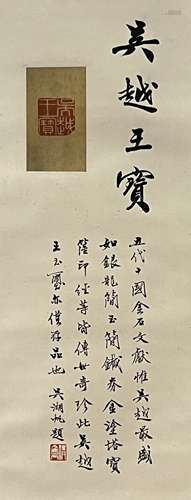 吳越王寶
吳越王寶
五代十國金石文獻惟吳越最盛
如銀龍簡玉簡鐵券金塗塔寶
篋印經等皆傳世奇珍此吳越
王玉璽亦僅存品也 吳湖帆題